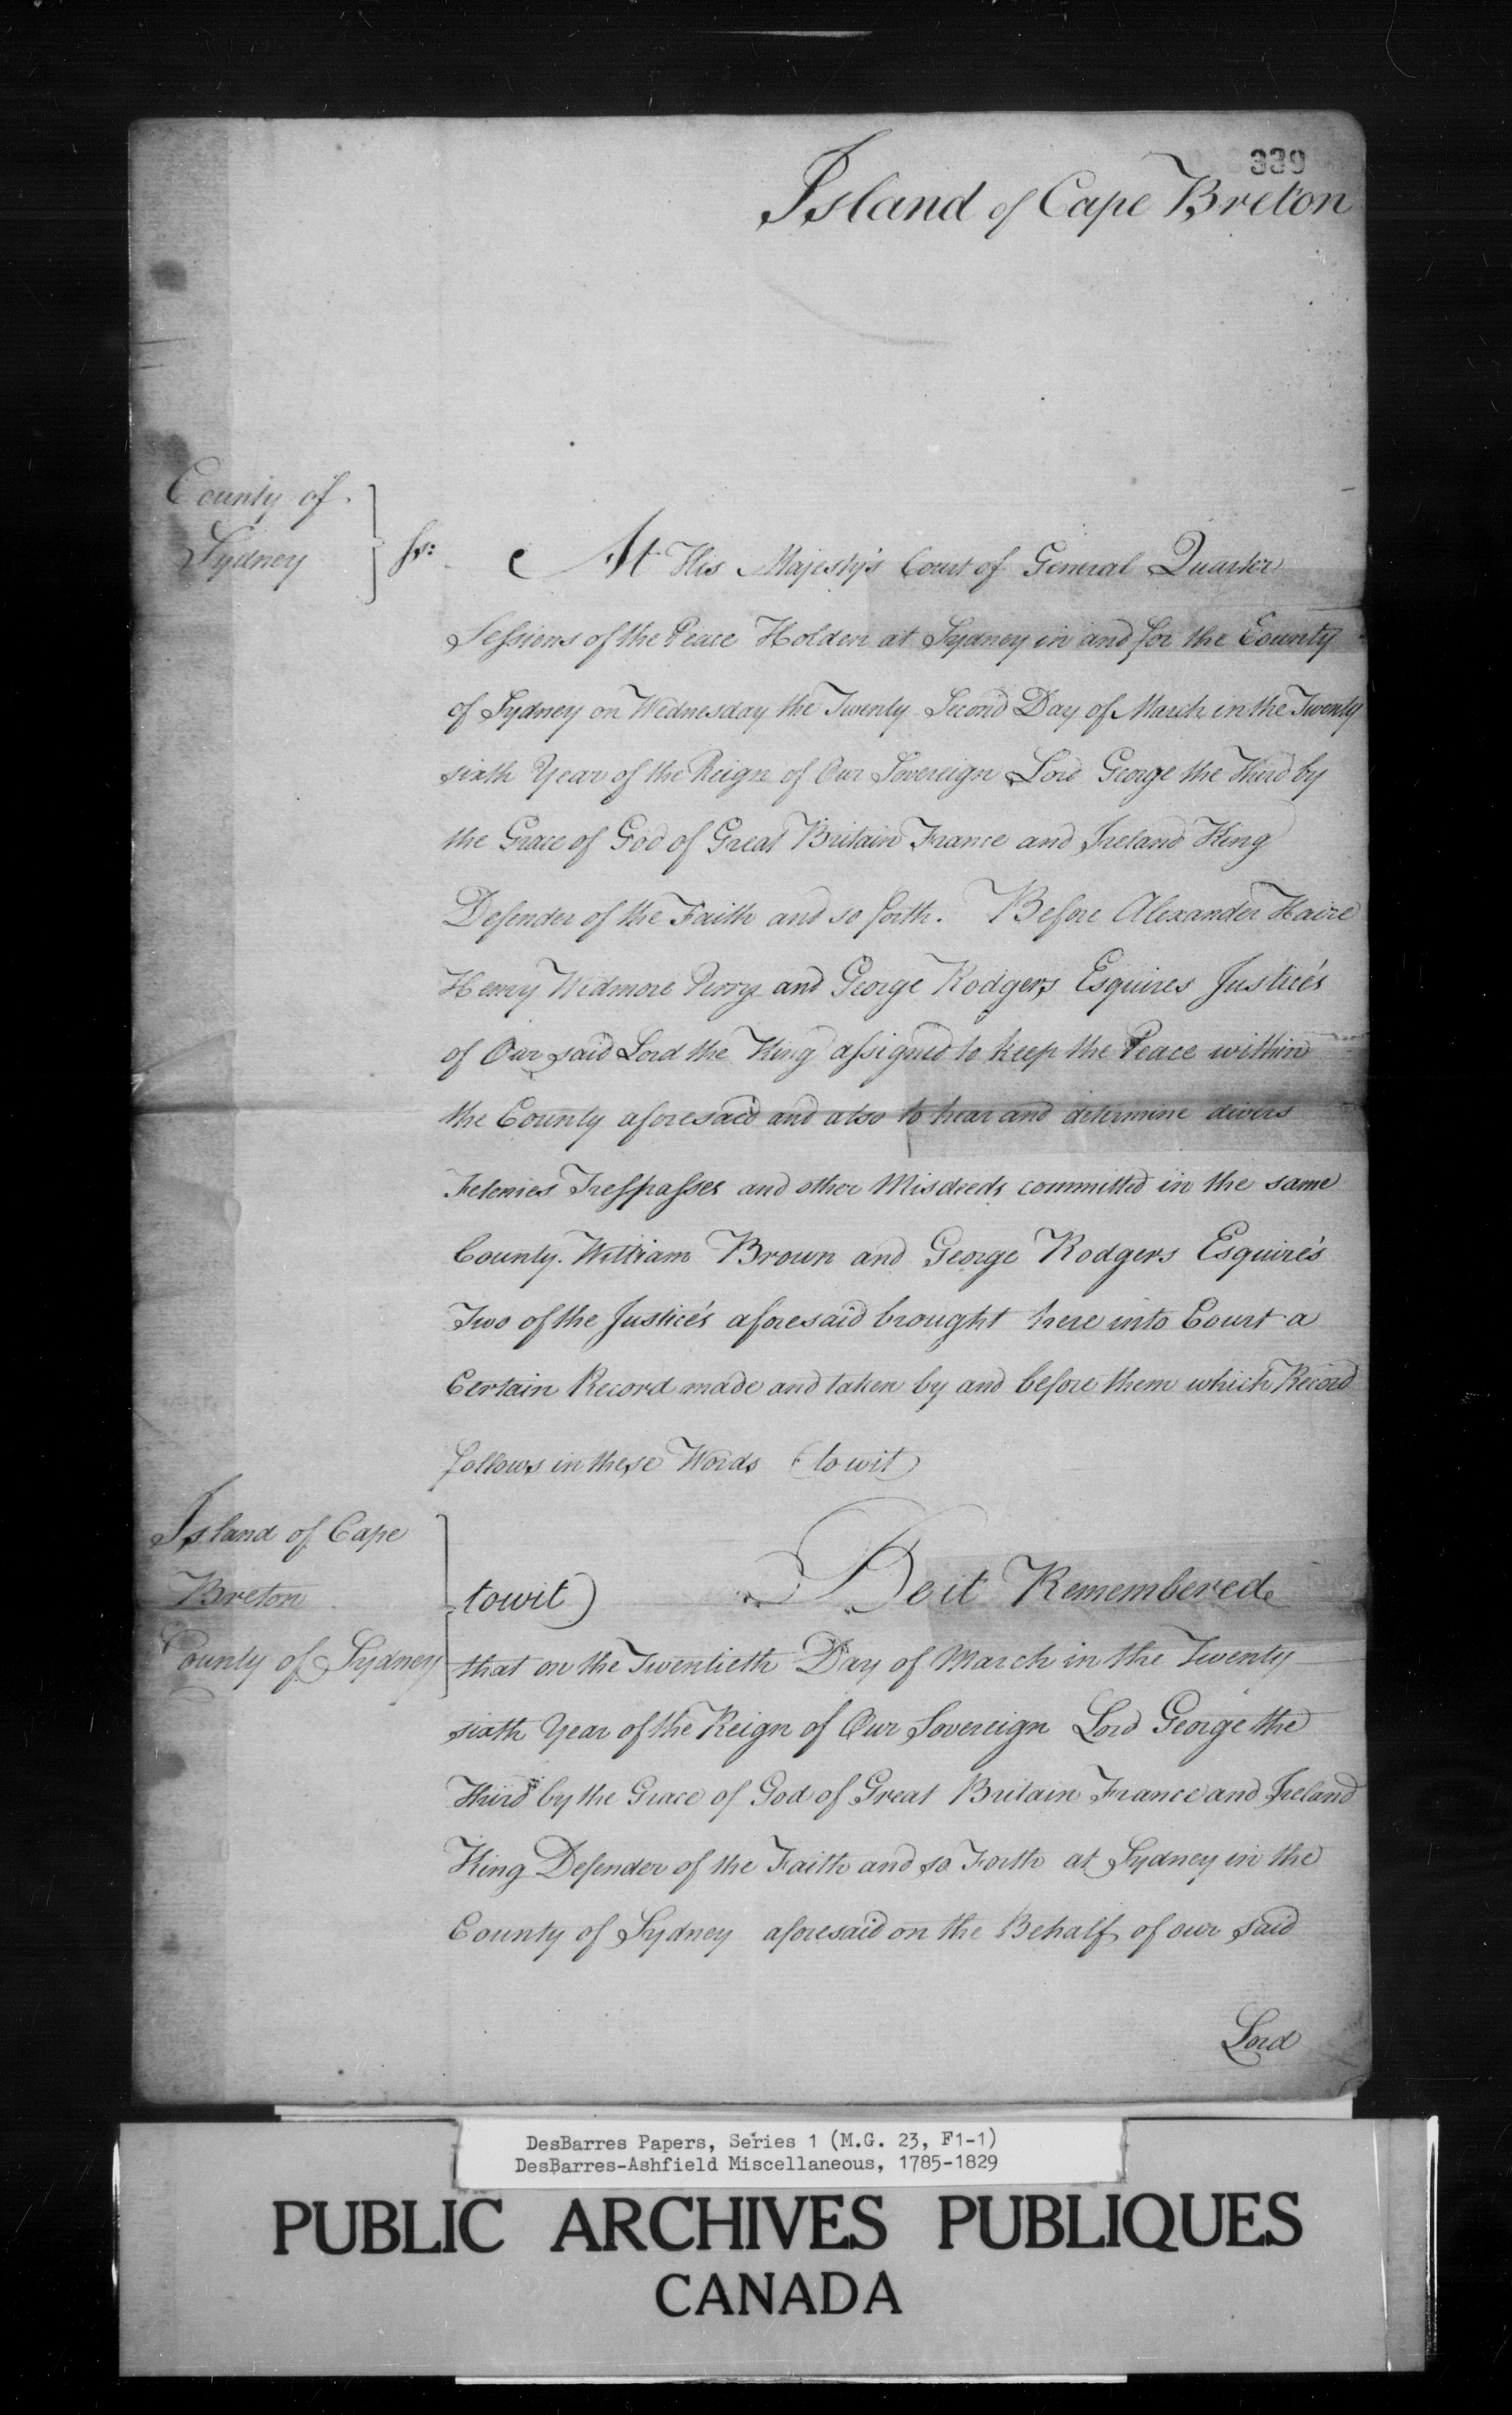 339
Island of Cape Breton
County of
Sydney
ss:
At His Majesty's Court of General Quarter
Sessions of the Peace Holden at Sydney in and for the County
of Sydney on Wednesday the Twenty Second Day of March in the Twenty
sixth Year of the Reign of Our Sovereign Lord George the Third by
the Grace of God of Great Britain France and Ireland King
Defender of the Faith and so forth. Before Alexander Haire
Henry Widmore Perry and George Rodgers Esquires Justice's
of Our said Lord the King assigned to keep the Peace within
the County aforesaid and also to hear and determine divers
Felonies Trespasses and other Misdeeds committed in the same
County. William Brown and George Rodgers Esquire's
Two of the Justice's aforesaid brought here into Court a
Certain Record made and taken by and before them which Record
follows in these Words (to wit)
Island of Cape
Breton
County of Sydney
towit)
Be it Remembered
that on the Twentieth Day of March in the Twenty
sixth Year of the Reign of Our Sovereign Lord George the
Third by the Grace of God of Great Britain France and Ireland
King Defender of the Faith and so Forth at Sydney in the
County of Sydney aforesaid on the Behalf of our said
Lord
DesBarres Papers, Series 1 (M.G. 23, F1-1)
DesBarres-Ashfield Miscellaneous, 1785-1829
PUBLIC ARCHIVES PUBLIQUES
CANADA